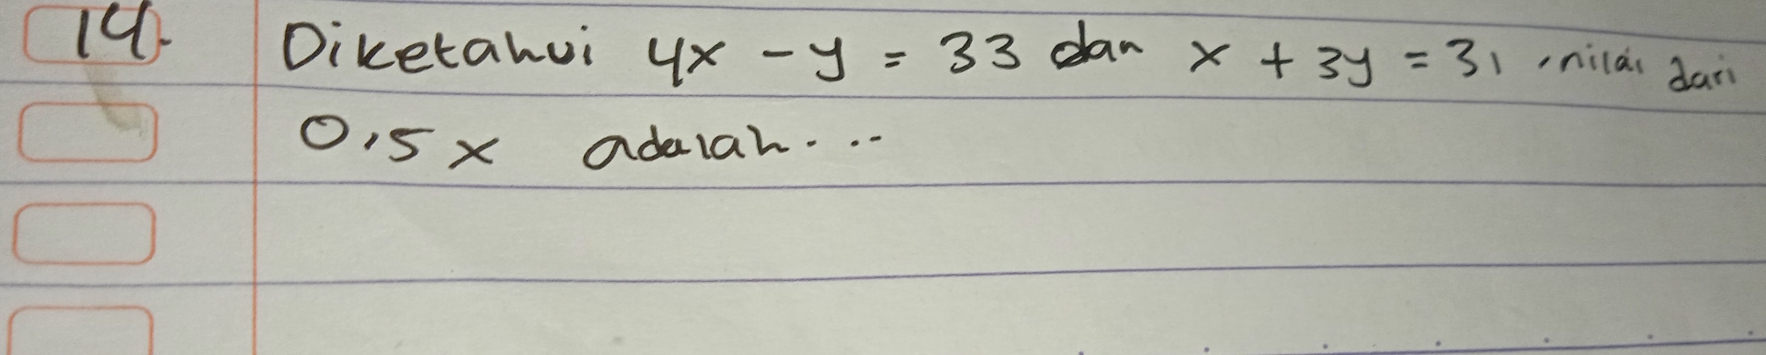 14. Diketahui 4x - y = 33 dan x + 3y = 31, nilai dari
0,5x adalah...